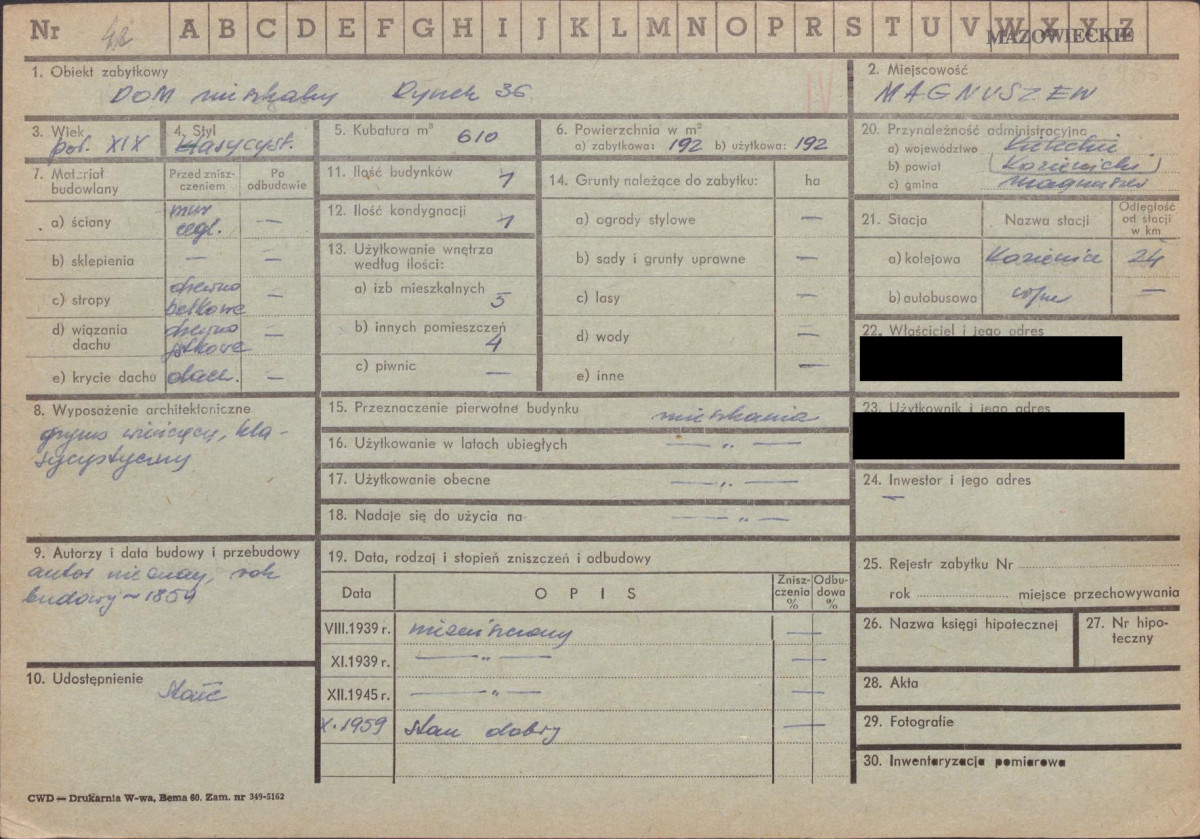 Nr 42 A B C D E F G H I J K L M N O P R S T U V W X Y Z
MAZOWIECKIE
1. Obiekt zabytkowy
DOM mieszkalny Rynek 36
IV
2. Miejscowość
MAGNUSZEW
3. Wiek
poł. XIX
4. Styl
klasycyst.
5. Kubatura m³ 610
6. Powierzchnia w m²
a) zabytkowa: 192 b) użytkowa: 192
20. Przynależność administracyjna
a) województwo Kieleckie
b) powiat Kozienicki
c) gmina Magnuszew
7. Materiał budowlany
Przed zniszczeniem
Po odbudowie
a) ściany mur cegl. —
b) sklepienia — —
c) stropy drewno belkowe —
d) wiązania dachu drewno —
e) krycie dachu dach. —
11. Ilość budynków 1
12. Ilość kondygnacji 1
13. Użytkowanie wnętrza
według ilości:
a) izb mieszkalnych 5
b) innych pomieszczeń 4
c) piwnic —
14. Grunty należące do zabytku: ha
a) ogrody stylowe —
b) sady i grunty uprawne —
c) lasy —
d) wody —
e) inne —
21. Stacja
Nazwa stacji
Odległość
od stacji
w km
a) kolejowa Kozienice 24
b) autobusowa —
22. Właściciel i jego adres
23. Użytkownik i jego adres
24. Inwestor i jego adres
—
8. Wyposażenie architektoniczne
gzyms wieńczący, kla-
sycystyczny
15. Przeznaczenie pierwotne budynku mieszkania
16. Użytkowanie w latach ubiegłych — „ —
17. Użytkowanie obecne — „ —
18. Nadaje się do użycia na — „ —
9. Autorzy i data budowy i przebudowy
autor nieznany, rok
budowy ~ 1854
10. Udostępnienie
19. Data, rodzaj i stopień zniszczeń i odbudowy
Data
OPIS
Zniszczenia %
Odbudowa %
VIII.1939 r. niezniszczony —
XI.1939 r. — „ — —
XII.1945 r. — „ — —
X.1959 stan dobry —
25. Rejestr zabytku Nr
rok miejsce przechowywania
26. Nazwa księgi hipotecznej
27. Nr hipo-
teczny
28. Akta
29. Fotografie
30. Inwentaryzacja pomiarowa
CWD — Drukarnia W-wa, Bema 60. Zam. nr 349-5162